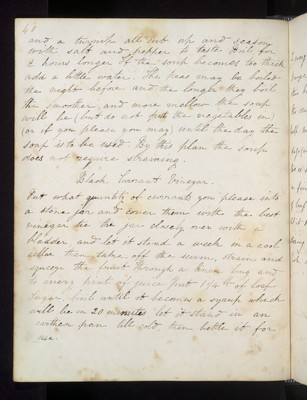 48
and a turnip all cut up and season
with salt and pepper to taste boil for
2 hours longer If the soup becomes too thick
add a little water. The peas may be boiled
the night before and the longer they boil
the smoother, and more mellow the soup
will be (but do not put the vegetables in)
(or if you please you may) until the day the
soup is to be used. By this plan the soup
does not require straining.
Black Currant Vinegar.
Put what quantity of currants you please into
a stone jar and cover them with the best
vinegar tie the jar closely over with a
bladder and let it stand a week in a cool
cellar then take off the scum, strain and
squeeze the fruit through a linen bag and
to every pint of juice put 1 1/4 lb of loaf
Sugar boil until it becomes a syrup which
will be in 20 minutes let it stand in an
earthen pan till cold then bottle it for
use.